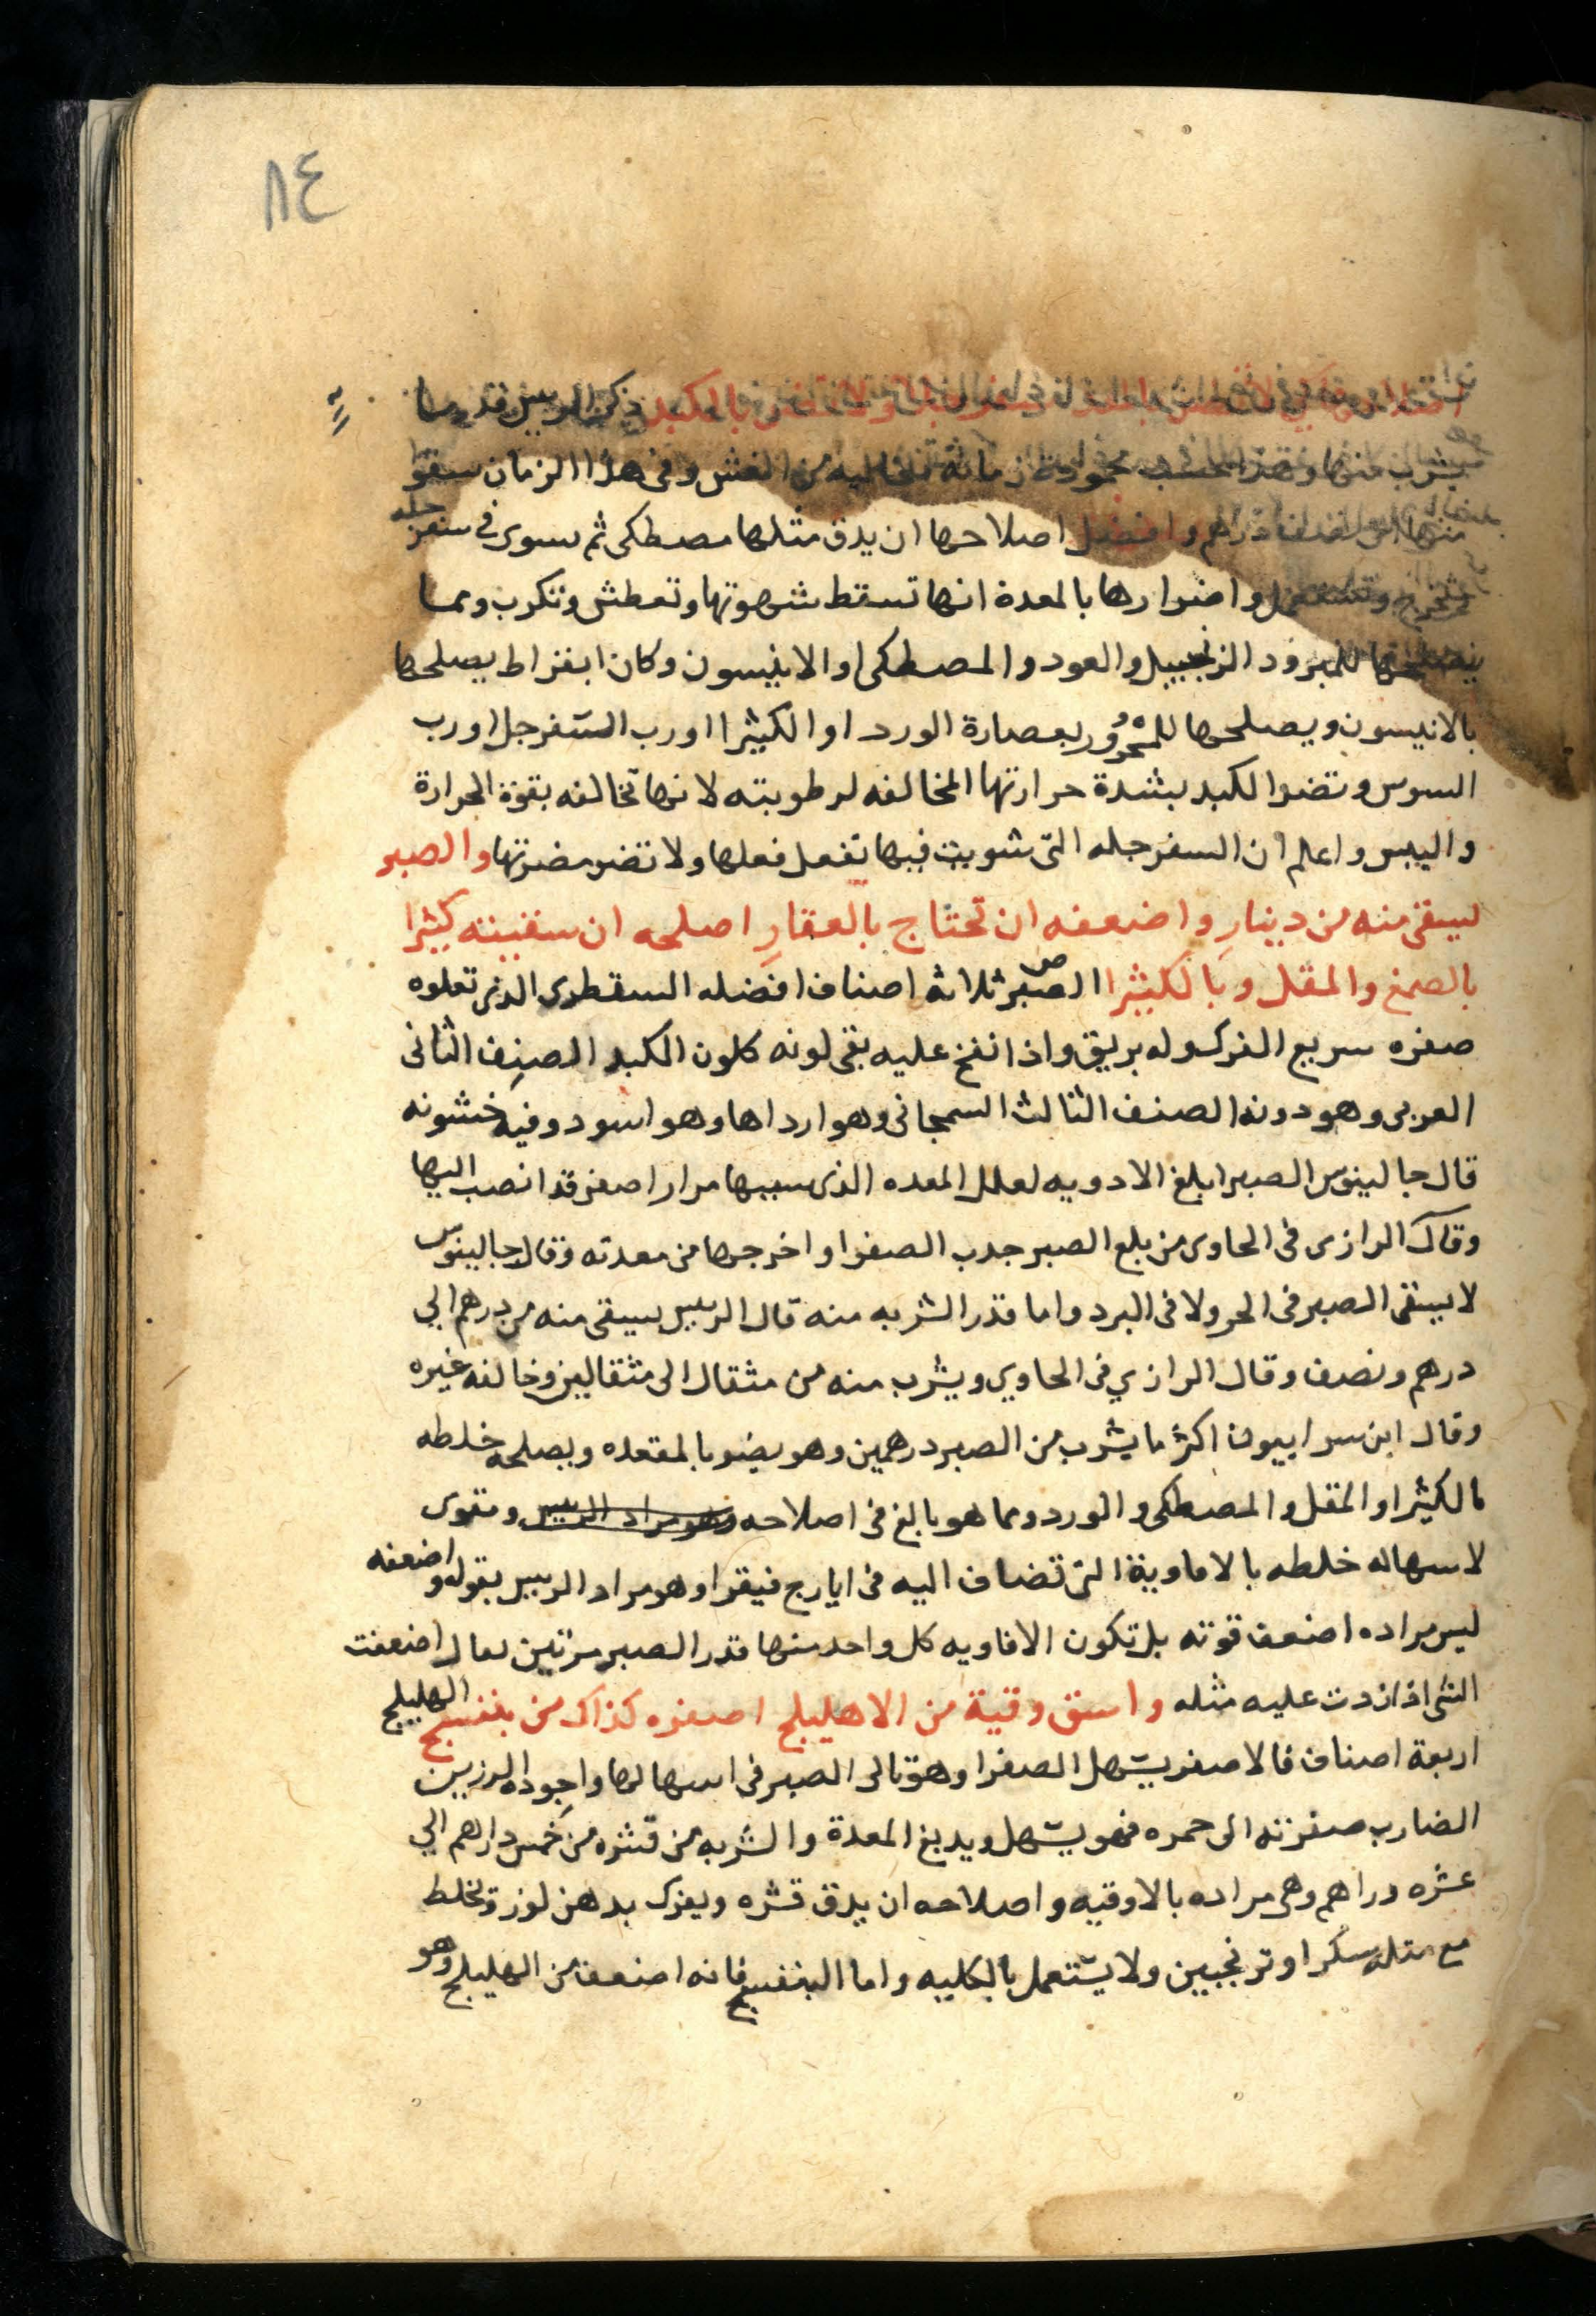 ٨٤
بالمكبد ذكر الرييس قدر ما
يشرب منها محمودة زمانه من الغش وفى هذا الزمان سقوا
منها دراهم وافضل اصلاحها ان يدق مثلها مصطكى ثم سوى في سفرجله
واضرارها بالمعدة انها تسقط شهوتها وتعطش وتكرب ومما
يصلحها للمبرود الزنجبيل والعود والمصطكى او الانيسون وكان ابقراط يصلحها
بالانيسون ويصلحها للمحرور بعصارة الورد او الكثيرا او رب السفرجل او رب
السوس وتضر الكبد بشدة حرارتها المخالفه لرطوبته لانها تخالفه بقوة الحرارة
واليبس واعلم ان السفرجله التى شويت فيها تفعل فعلها ولا تضر مضرتها والصبر
ليسقى منه من دينار واضعفه ان تحتاج بالعقار اصلحه ان سقيته كثيرا
بالصمغ والمقل وبالكثيرا الصبر ثلاثة اصناف افضله السقطرى الذى تعلوه
صفره سريع الفرك وله بريق واذا نفخ عليه بقى لونه كلون الكبد الصنف الثانى
العربى وهو دونه الصنف الثالث السمجانى وهو ارداها وهو اسود وفيه خشونه
قال جالينوس الصبر ابلغ الادويه لعلل المعده الذى سببها مرار اصفر قد انصب اليها
وقال الرازى فى الحاوى من بلع الصبر جدب الصفرا واخرجها من معدته وقال جالينوس
لا يسقى الصبر فى الحر ولا فى البرد واما قدر الشربه منه قال الرييس يسقى منه من درهم الي
درهم ونصف وقال الرازي فى الحاوي ويشرب منه من مثقال الى مثقالين وخالفه غيره
وقال ابن سرابيون اكثر ما يشرب من الصبر درهمين وهو يضر بالمقعده ويصلحه خلطه
بالكثيرا والمقل والمصطكى والورد ومما هو بالغ فى اصلاحه وهو مراد الرييس ومقوى
لاسهاله خلطه بالافاوية التى تضاف اليه فى ايارج فيقرا وهو مراد الرييس بقوله واضعفه
ليس مراده اضعف قوته بل تكون الافاويه كل واحد منها قدر الصبر مرتين يقال اضعفت
الشى اذا زدت عليه مثله واسق وقية من الاهليلج اصفره كذاك من بنفسج الهليلج
اربعة اصناف فالاصفر يسهل الصفرا وهو تالى الصبر فى اسهالها واجوده الرزين
الضارب صفرته الى حمره فهو يسهل ويدبغ المعدة والشربه من قشره من خمس دراهم الي
عشره دراهم وهى مراده بالاوقيه واصلاحه ان يدق قشره ويفرك بدهن لوز ويخلط
مع مثله سكرا وترنجبين ولا يستعمل بالكليه واما البنفسج فانه اضعف من الهليلج وهو